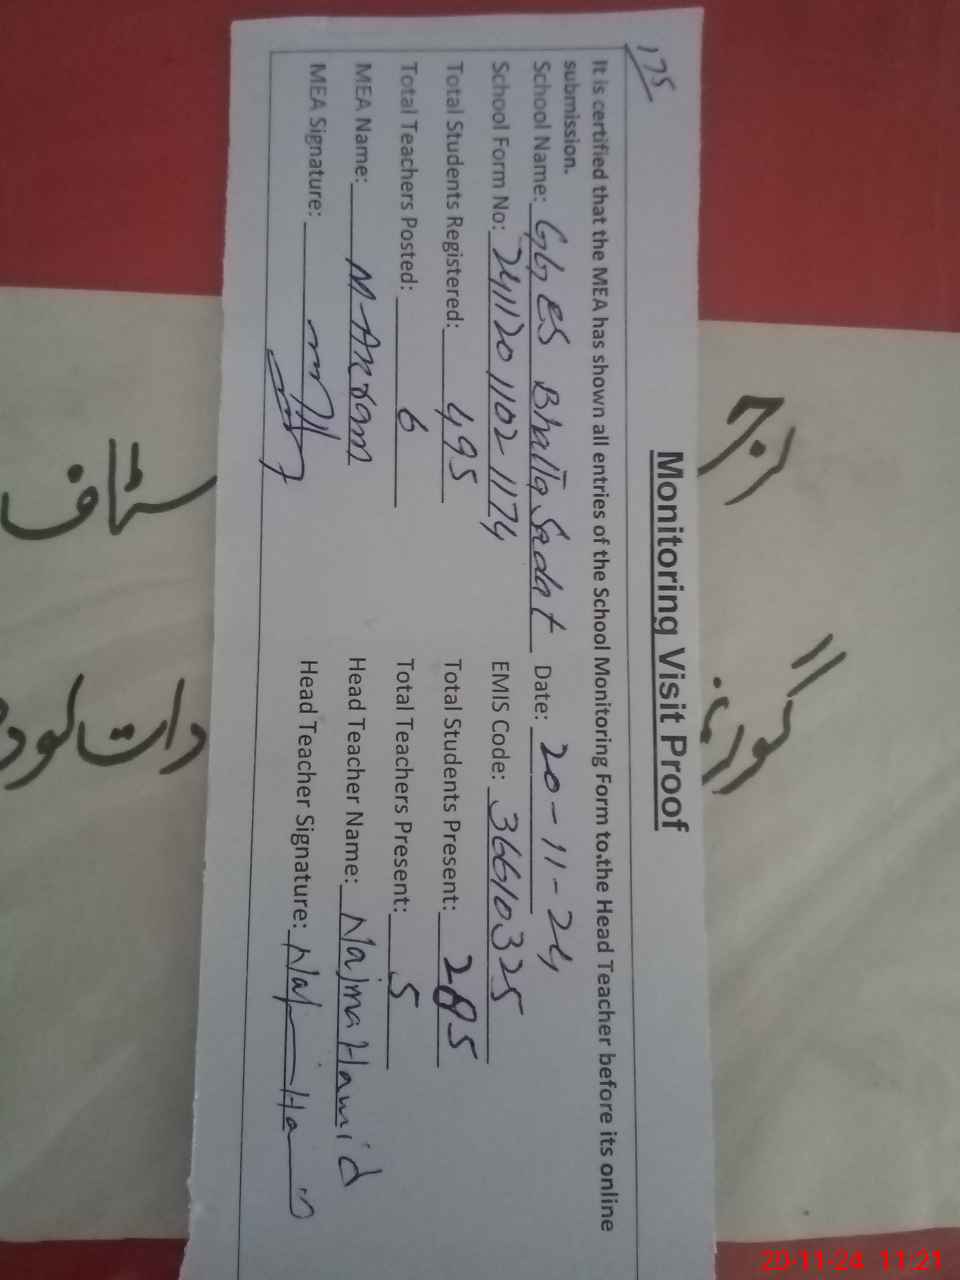 175
Monitoring Visit Proof
It is certified that the MEA has shown all entries of the School Monitoring Form to the Head Teacher before its online
submission.
School Name: GGES Bhalla Sadat Date: 20-11-24
School Form No: 24112011021174 EMIS Code: 36610325
Total Students Registered: 495 Total Students Present: 295
Total Teachers Posted: 6 Total Teachers Present: 5
MEA Name: M-Akram Head Teacher Name: Najma Hamid
MEA Signature: Head Teacher Signature:
سٹاف
20-11-24 11:21